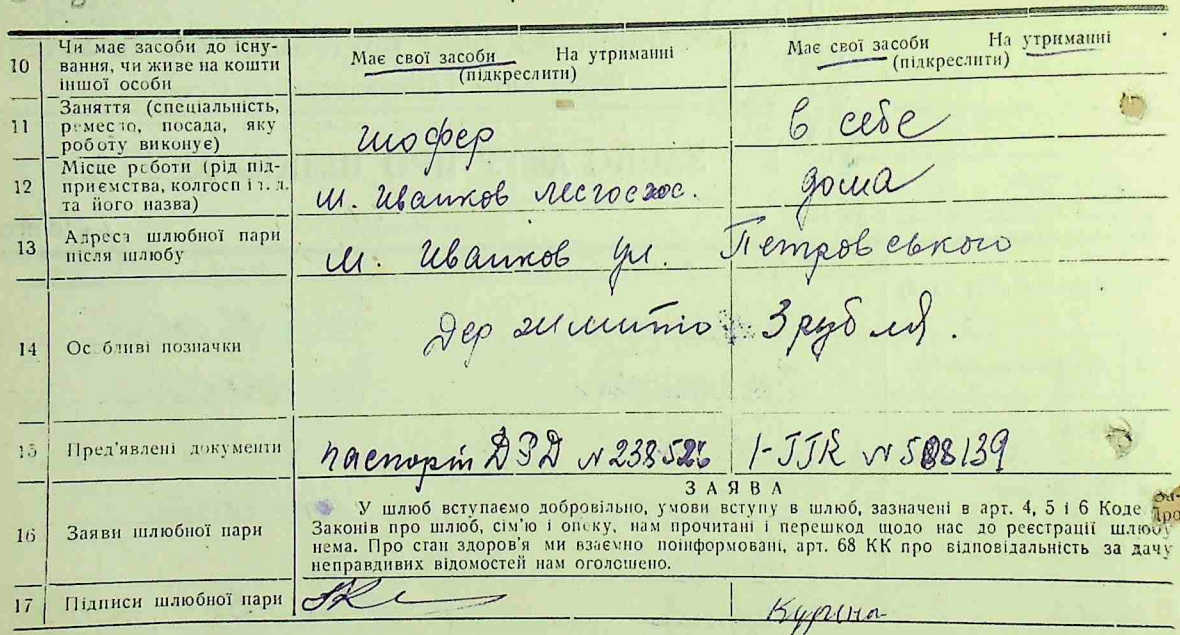 10 Чи має засоби до існу-
вання, чи живе на кошти
іншої особи
Має свої засоби На утриманні
(підкреслити)
Має свої засоби На утриманні
(підкреслити)
11 Заняття (спеціальність,
ремесло, посада, яку
роботу виконує)
шофер
в себе
12 Місце роботи (рід під-
приємства, колгосп і т. д.
та його назва)
м. Иванков лесгосхос.
дома
13 Адреса шлюбної пари
після шлюбу
м. Иванков ул. Петровського
14 Особливі позначки
Дер 3 рубля.
15 Пред'явлені документи
паспорт № 2385
№ 139
16 Заяви шлюбної пари
ЗАЯВА
У шлюб вступаємо добровільно, умови вступу в шлюб, зазначені в арт. 4, 5 і 6 Коде
Законів про шлюб, сім'ю і опіку, нам прочитані і перешкод щодо нас до реєстрації шлюбу
нема. Про стан здоров'я ми взаємно поінформовані, арт. 68 КК про відповідальність за дачу
неправдивих відомостей нам оголошено.
17 Підписи шлюбної пари
Куріна